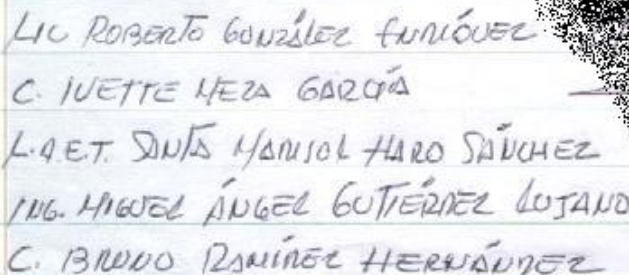 LIC ROBERTO GONZÁLEZ ENRÍQUEZ
C. IVETTE MEZA GARCÍA
L.A.E.T. SANTA MARISOL HARO SÁNCHEZ
ING. MIGUEL ÁNGEL GUTIÉRREZ LUJANO
C. BRUNO RAMÍREZ HERNÁNDEZ